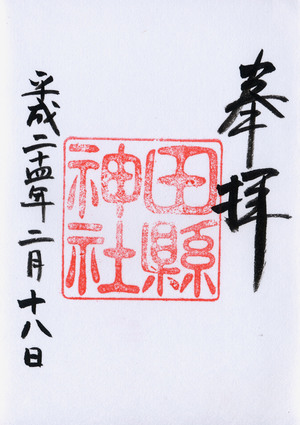 奉拝
田縣
神社
平成二十四年二月十八日